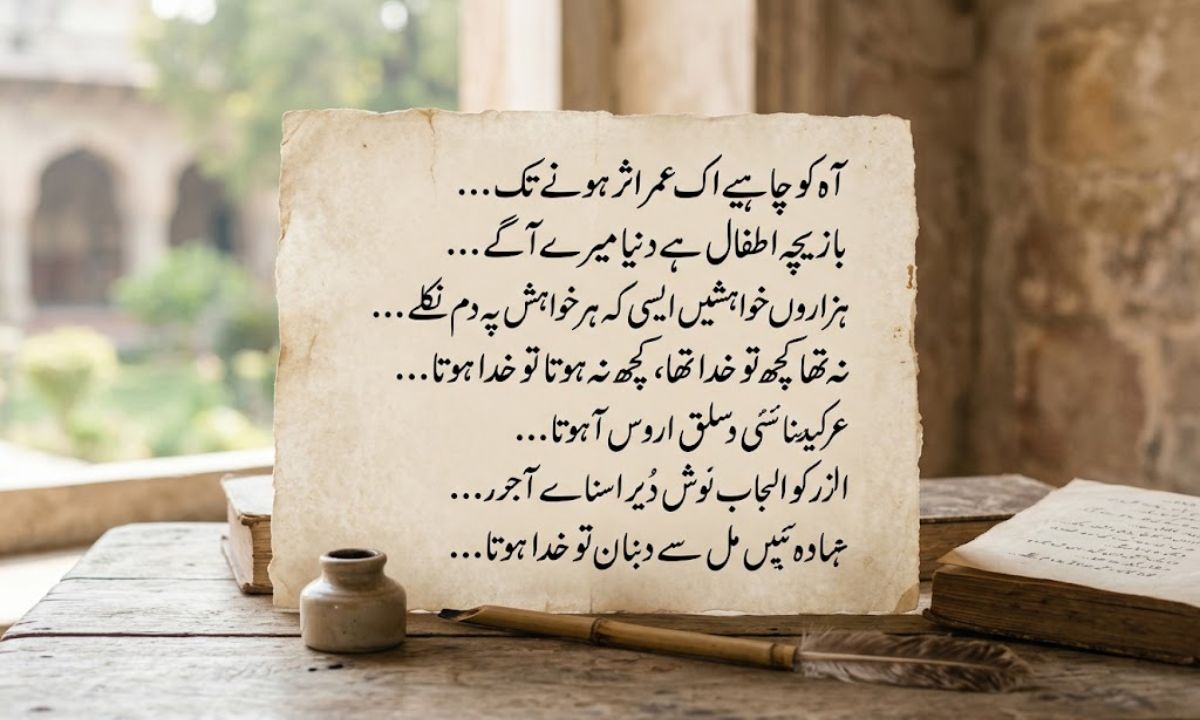 آہ کو چاہیے اک عمر اثر ہونے تک...
بازیچہ اطفال ہے دنیا میرے آگے...
ہزاروں خواہشیں ایسی کہ ہر خواہش پہ دم نکلے...
نہ تھا کچھ تو خدا تھا، کچھ نہ ہوتا تو خدا ہوتا...
دسلق اروس آ ہوتا...
الزر کو الجاب نوش دُیر اسناے آجرر...
مل سے دبنان تو خدا ہوتا...